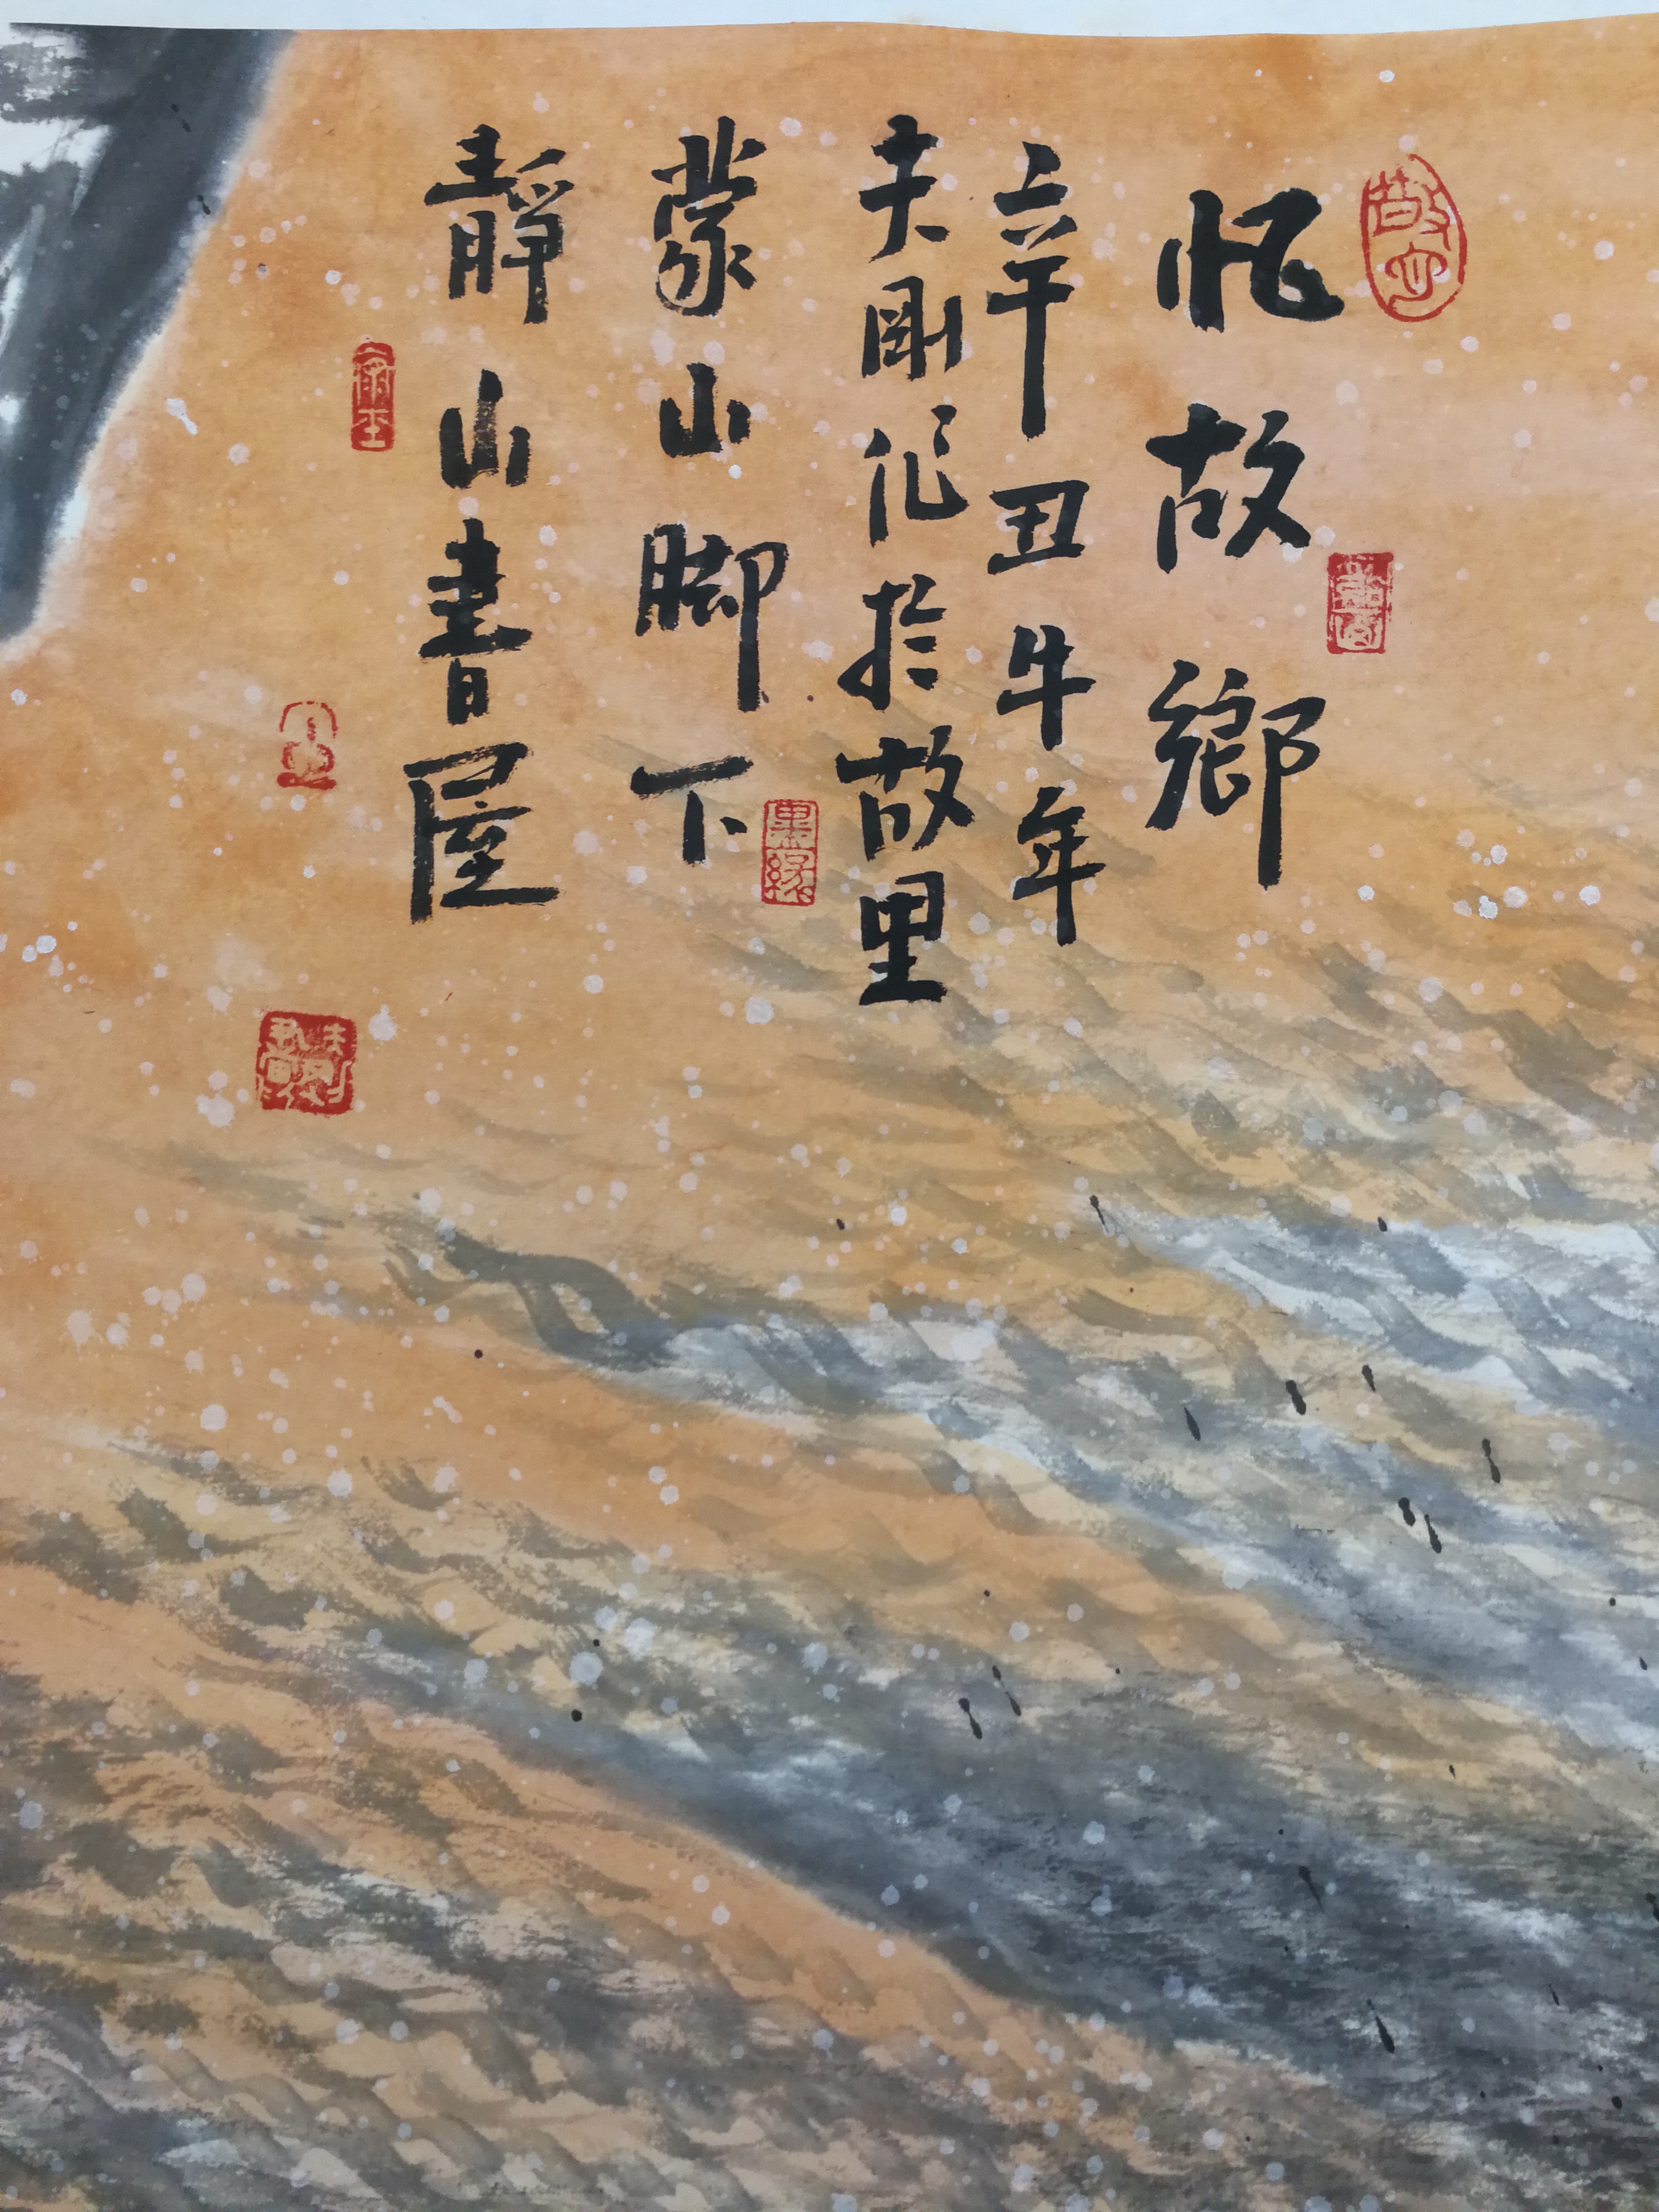 忆故鄉
辛丑牛年
夫剛作於故里
蒙山脚下
靜山書屋
墨緣